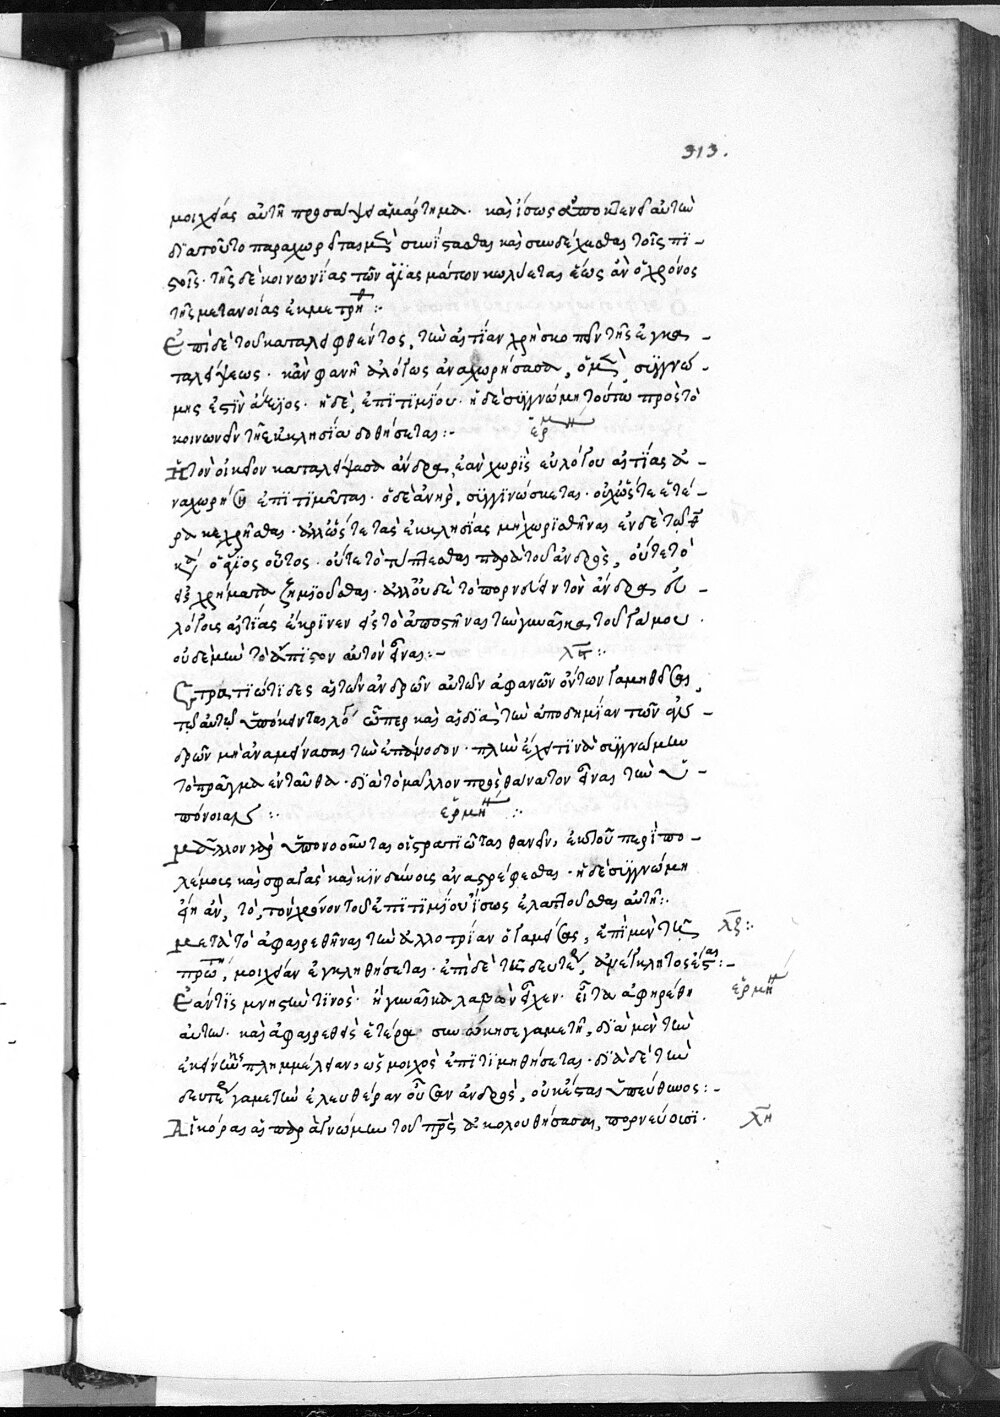 313.
μοιχείας αὐτῇ προσάψει ἁμάρτημα. καὶ ἴσως ἀποκτενεῖ αὐτὴν
διατοῦτο παραχωρεῖται μὲν συνίστασθαι καὶ συνδέχεσθαι τοῖς πι-
στοῖς. τῆς δὲ κοινωνίας τῶν ἁγιασμάτων κωλύεται ἕως ἂν ὁ χρόνος
τῆς μετανοίας ἐκμετρηθῇ :-
Ἐπὶ δὲ τοῦ καταλειφθέντος, τὴν αἰτίαν χρὴ σκοπεῖν τῆς ἐγκα-
ταλείψεως. κἂν φανῇ ἀλόγως ἀναχωρήσασα, ὁ μὲν συγγνώ-
μης ἐστὶν ἄξιος. ἡ δὲ, ἐπιτιμίου. ἡ δὲ συγγνώμη τούτω πρὸς τὸ
κοινωνεῖν τῇ ἐκκλησία δοθήσεται :- ἑρμη
Ἡ τὸν οἰκεῖον καταλείψασα ἄνδρα, ἐὰν χωρὶς εὐλόγου αἰτίας ἀ-
ναχωρήση ἐπιτιμᾶται. ὁ δὲ ἀνὴρ, συγγινώσκεται. οὐχ ὥστε ἑτέ-
ρα κεχρῆσθαι. ἀλλ' ὥστε τῆς ἐκκλησίας μὴ χωρισθῆναι. ἐν δὲ τῶ
ὁ ἅγιος οὗτος. οὔτε τὸ τύπτεσθαι παρὰ τοῦ ἀνδρὸς, οὔτε τὸ
εἰς χρήματα ζημιοῦσθαι. ἀλλ' οὐδὲ τὸ πορνεύειν τὸν ἄνδρα εὐ-
λόγους αἰτίας ἔκρινεν εἰς τὸ ἀποστῆναι τὴν γυναῖκα τοῦ γάμου.
οὐδὲ μὴν τὸ ἄπιστον αὐτὸν εἶναι :- λϛ :-
Στρατιώτιδες αἱ τῶν ἀνδρῶν αὐτῶν ἀφανῶν ὄντων γαμηθεῖσαι,
τῷ αὐτῷ ὑπόκεινται λόγω ὥπερ καὶ αἱ διὰ τὴν ἀποδημίαν τῶν ἀν-
δρῶν μὴ ἀναμείνασαι τὴν ἐπάνοδον. πλὴν ἔχει τινὰ συγγνώμην
τὸ πρᾶγμα ἐνταῦθα. διὰ τὸ μᾶλλον πρὸς θάνατον εἶναι τὴν ὑ-
πόνοιαν :- ἑρμη :-
μᾶλλον γὰρ ὑπονοοῦνται οἱ στρατιῶται θανεῖν, ἐκ τοῦ περὶ πο-
λέμοις καὶ σφαγαῖς καὶ κινδύνοις ἀναστρέφεσθαι. ἡ δὲ συγγνώμη
εἴη ἂν, τὸ, τὸν χρόνον τοῦ ἐπιτιμίου ἴσως ἐλαττοῦσθαι αὐτῇ :-
μετὰ τὸ ἀφαιρεθῆναι τὴν ἀλλοτρίαν ὁ γαμήσας, ἐπὶ μὲν τῇ λζ :-
πρώτη, μοιχείαν ἐγκληθήσεται. ἐπὶ δὲ τῇ δευτέρα, ἀνέγκλητος ἔσται :-
Ἐάν τις μνηστὴν τινὸς. ἢ γυναῖκα λαβὼν εἶχεν. εἶτα ἀφηρέθη ἑρμη
αὐτὴν. καὶ ἀφαιρεθεὶς ἑτέρα συνώκησε γαμετῇ, διὰ μὲν τὴν
ἐκείνης πλημμέλειαν, ὡς μοιχὸς ἐπιτιμηθήσεται. διὰ δὲ τὴν
δευτέραν γαμετὴν ἐλευθέραν οὖσαν ἀνδρὸς, οὐκ ἔσται ὑπεύθυνος :-
Αἱ κόραι αἱ παρὰ γνώμην τοῦ πατρὸς ἀκολουθήσασαι, πορνεύουσι. λη